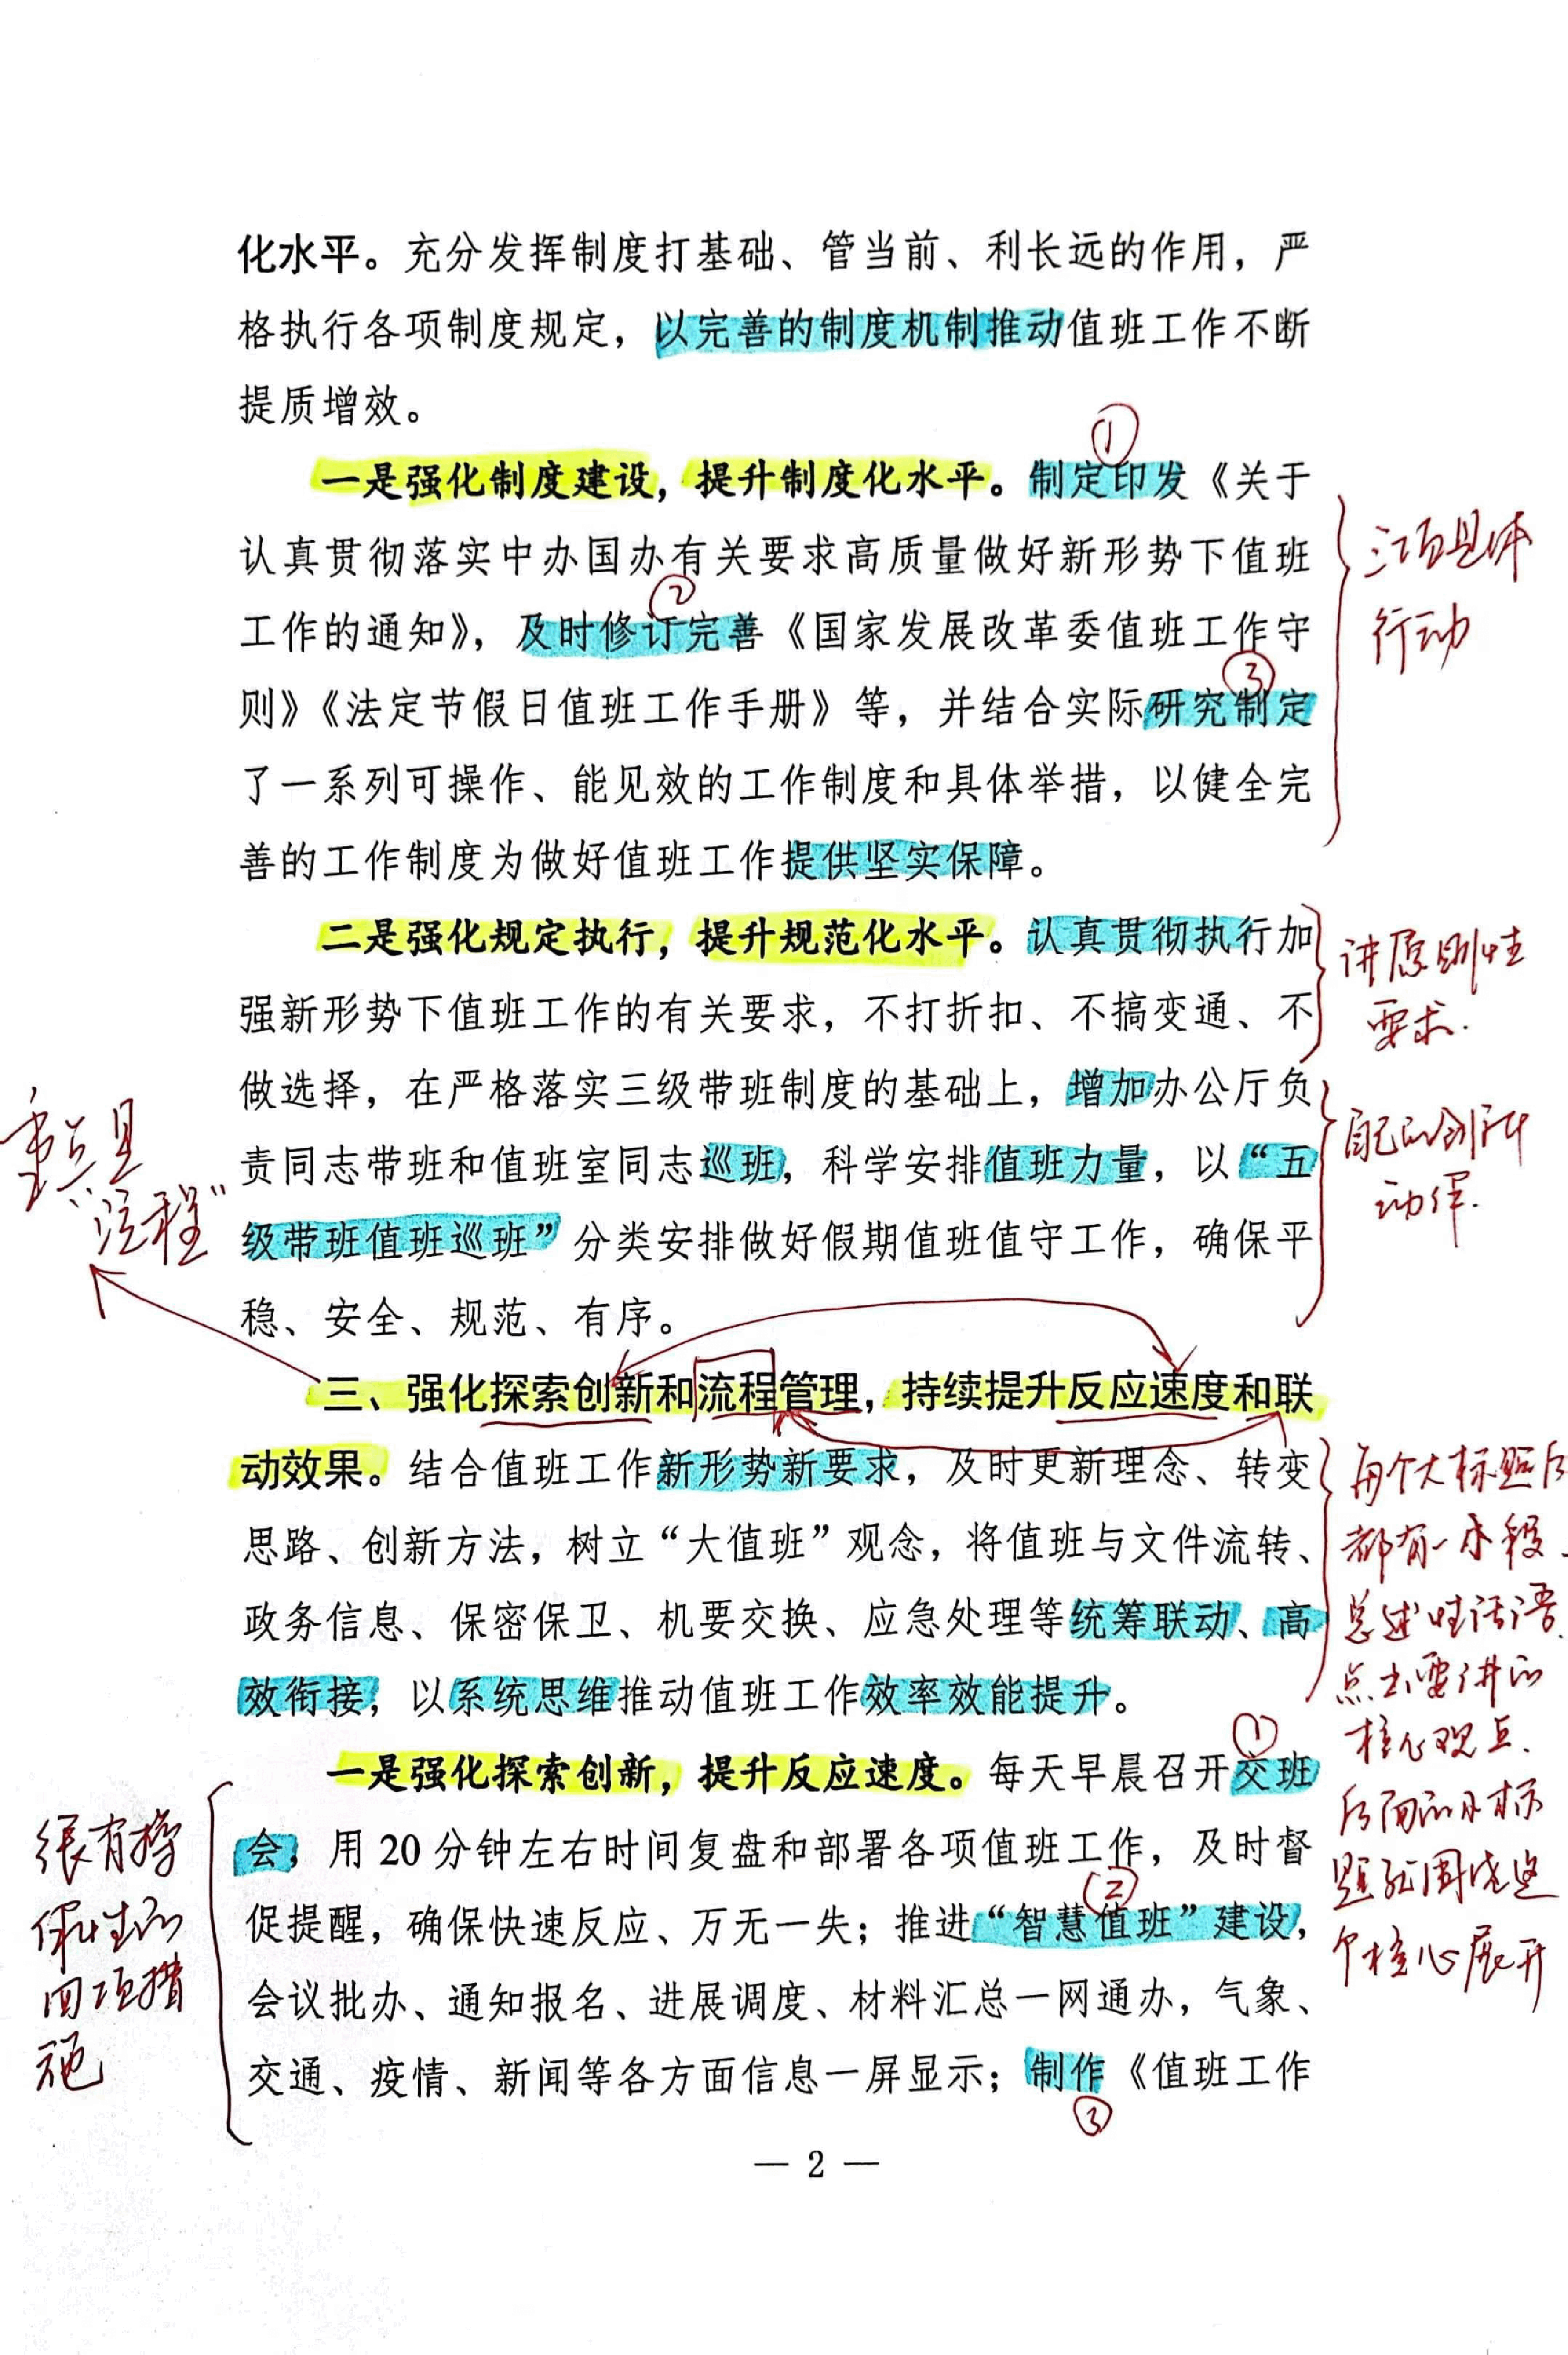 化水平。充分发挥制度打基础、管当前、利长远的作用，严
格执行各项制度规定，以完善的制度机制推动值班工作不断
提质增效。
①
一是强化制度建设，提升制度化水平。制定印发《关于
认真贯彻落实中办国办有关要求高质量做好新形势下值班
②
工作的通知》，及时修订完善《国家发展改革委值班工作守
③
则》《法定节假日值班工作手册》等，并结合实际研究制定
了一系列可操作、能见效的工作制度和具体举措，以健全完
善的工作制度为做好值班工作提供坚实保障。
三项具体
行动
二是强化规定执行，提升规范化水平。认真贯彻执行加
强新形势下值班工作的有关要求，不打折扣、不搞变通、不
做选择，在严格落实三级带班制度的基础上，增加办公厅负
责同志带班和值班室同志巡班，科学安排值班力量，以“五
级带班值班巡班”分类安排做好假期值班值守工作，确保平
稳、安全、规范、有序。
讲原则性
要求.
自己的创新
动作.
重点是
“流程”
三、强化探索创新和流程管理，持续提升反应速度和联
动效果。结合值班工作新形势新要求，及时更新理念、转变
思路、创新方法，树立“大值班”观念，将值班与文件流转、
政务信息、保密保卫、机要交换、应急处理等统筹联动、高
效衔接，以系统思维推动值班工作效率效能提升。
每个大标题后
都有一小段
总述性话语
点出要讲的
核心观点.
后面的小标
题就围绕这
个核心展开
①
一是强化探索创新，提升反应速度。每天早晨召开交班
会，用 20 分钟左右时间复盘和部署各项值班工作，及时督
②
促提醒，确保快速反应、万无一失；推进“智慧值班”建设，
会议批办、通知报名、进展调度、材料汇总一网通办，气象、
交通、疫情、新闻等各方面信息一屏显示；制作《值班工作
③
很有操
作性的
四项措
施
— 2 —